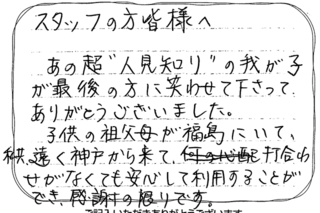 スタッフの方皆様へ
あの超"人見知り"の我が子
が最後の方に笑わせて下さって、
ありがとうございました。
子供の祖父母が福島にいて、
私共、遠く神戸から来て、打合わ
せがなくても安心して利用することが
でき、感謝の限りです。
ご記入いただきありがとうございます